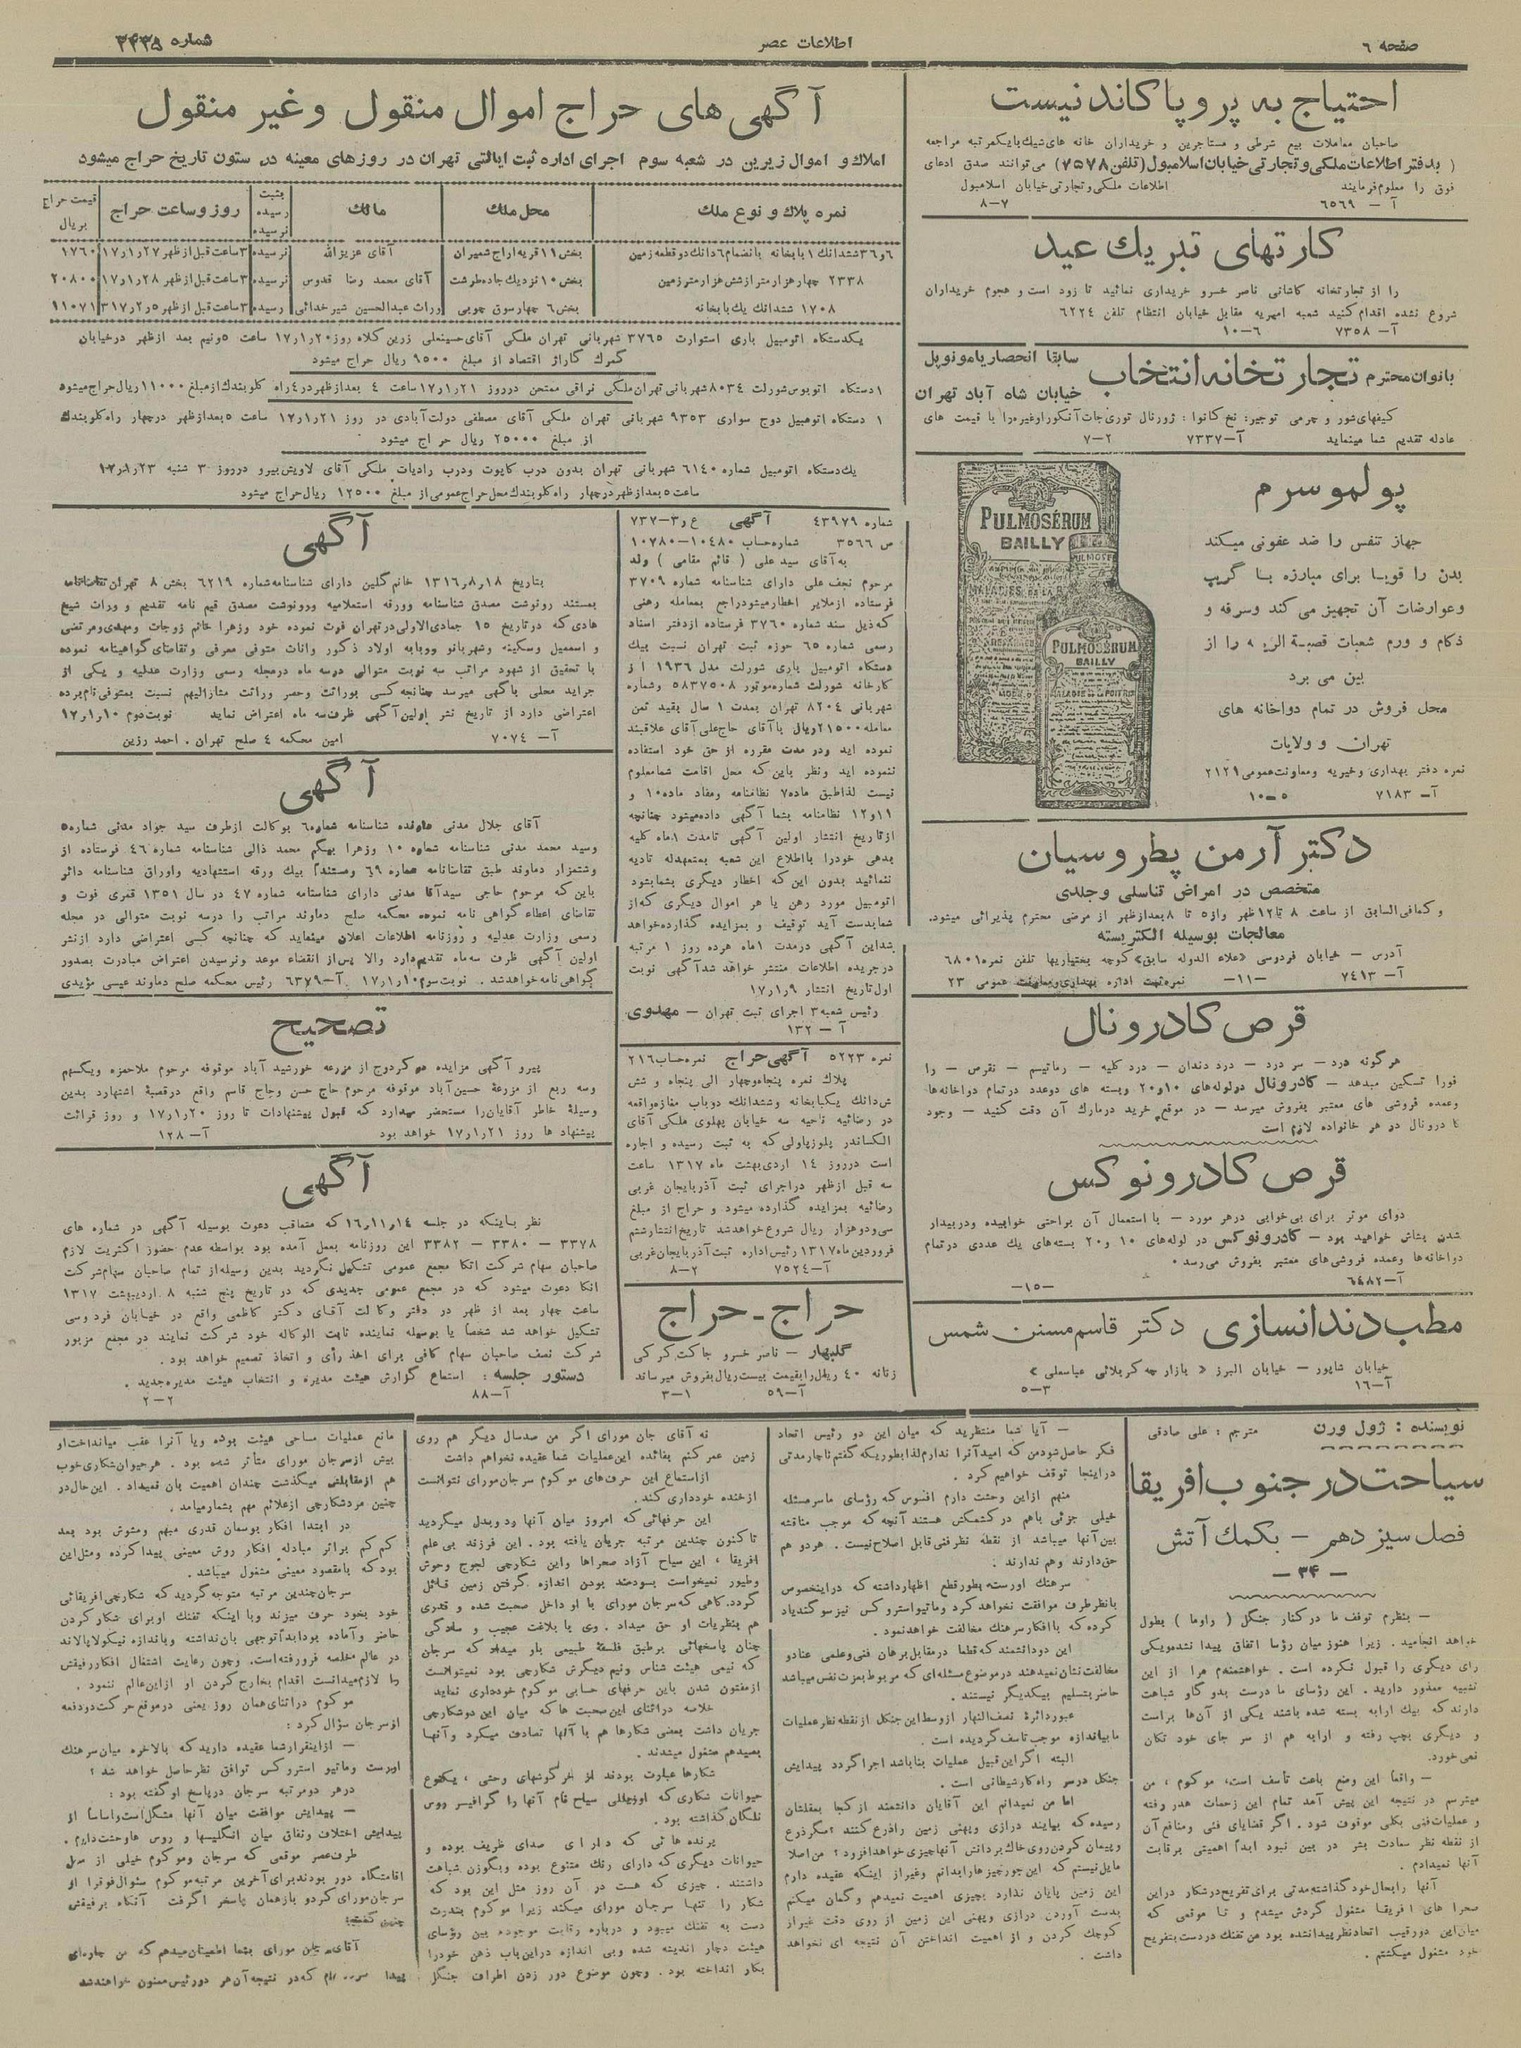 صفحه ۶
اطلاعات عصر
شماره ۳۴۳۵
احتیاج به پروپاکاندنیست
صاحبان معاملات بیع شرطی و مستاجرین و خریداران خانه های شیك بایكمرتبه مراجعه
( بدفتر اطلاعات ملکی و تجارتی خیابان اسلامبول (تلفن ۷۵۷۸) می توانند صدق ادعای
فوق را معلوم فرمایند اطلاعات ملکی وتجارتی خیابان اسلامبول
آ – ۶۵۶۹ ۷–۸
کارتهای تبریك عید
را از تجارتخانه کاشانی ناصر خسرو خریداری نمائید تا زود است و هجوم خریداران
شروع نشده اقدام کنید شعبه امیریه مقابل خیابان انتظام تلفن ۶۲۲۴
آ– ۷۳۵۸ ۶–۱۰
بانوان محترم تجارتخانه انتخاب
سابقا انحصار یامونوپل
خیابان شاه آباد تهران
کیفهای شور و چرمی توجیر: نخ کانوا : ژورنال توری جات آنکورا وغیره را با قیمت های
عادله تقدیم شما مینماید آ–۷۳۳۷ ۲–۷
پولموسرم
جهاز تنفس را ضد عفونی میکند
بدن را قویا برای مبارزه با گریپ
وعوارضات آن تجهیز می کند وسرفه و
ذکام و ورم شعبات قصبة الریه را از
بین می برد
محل فروش در تمام دواخانه های
تهران و ولایات
نمره دفتر بهداری وخیریه ومعاونت عمومی ۲۱۲۹
آ– ۷۱۸۳ ۵–۱۰
PULMOSÉRUM
BAILLY
PULMOSÉRUM
BAILLY
دکتر آرمن پطروسیان
متخصص در امراض تناسلی وجلدی
و کمافی السابق از ساعت ۸ تا ۱۲ ظهر واز ۵ تا ۸ بعدازظهر از مرضی محترم پذیرائی میشود.
معالجات بوسیله الکتریسته
آدرس – خیابان فردوسی «علاء الدوله سابق» کوچه بختیاریها تلفن نمره ۶۸۰۱
آ– ۷۴۱۳ –۱۱– نمره ثبت اداره بهداری ومعاونت عمومی ۲۳
قرص کادرونال
هرگونه درد – سر درد – درد دندان – درد کلیه – رماتیسم – نقرس – را
فورا تسکین میدهد – کادرونال درلوله های ۱۰ و ۲۰ وبسته های دوعدد درتمام دواخانه ها
وعمده فروشی های معتبر بفروش میرسد – در موقع خرید درمارك آن دقت کنید – وجود
کادرونال در هر خانواده لازم است
قرص کادرونوکس
دوای موثر برای بی خوابی درهر مورد – با استعمال آن براحتی خوابیده ودربیدار
شدن بشاش خواهید بود – کادرونوکس در لوله های ۱۰ و ۲۰ بسته های یك عددی درتمام
دواخانه ها وعمده فروشی های معتبر بفروش می رسد.
آ–۶۴۸۲ –۱۵–
مطب دندانسازی دکتر قاسم مسنن شمس
خیابان شاپور – خیابان البرز « بازارچه کربلائی عباسعلی »
آ–۱۶ ۳–۵
آگهی های حراج اموال منقول وغیر منقول
املاك و اموال زیرین در شعبه سوم اجرای اداره ثبت ایالتی تهران در روزهای معینه در ستون تاریخ حراج میشود
نمره پلاك و نوع ملك محل ملك مالك بثبت رسیده نرسیده روز وساعت حراج قیمت حراج بریال
۶و۳۶ ششدانك ۱ بابخانه بانضمام ۶ دانك دوقطعه زمین بخش ۱۱ قریه اراج شمیران آقای عزیزالله نرسیده ۳ ساعت قبل از ظهر ۱۷٫۱٫۲۷ ۱۷۶۰
۲۳۳۸ چهار هزار متر از شش هزار متر زمین بخش ۱۰ نزدیك جاده طرشت آقای محمد رضا قدوس نرسیده ۳ ساعت قبل از ظهر ۱۷٫۱٫۲۸ ۲۰۸۰۰
۱۷۰۸ ششدانك یك بابخانه بخش ۶ چهارسوق چوبی وراث عبدالحسین شیرخدائی رسیده ۳ ساعت قبل از ظهر ۳۱۷٫۲٫۵ ۱۱۰۷۱
یکدستگاه اتومبیل باری استوارت ۳۷۶۵ شهربانی تهران ملکی آقای حسینعلی زرین کلاه روز ۱۷٫۱٫۲۰ ساعت ۵ ونیم بعد ازظهر درخیابان
گمرك گاراژ اقتصاد از مبلغ ۹۵۰۰ ریال حراج میشود
۱ دستگاه اتوبوس شورلت ۸۰۳۴ شهربانی تهران ملکی نراقی ممتحن درروز ۱۷٫۱٫۲۱ ساعت ۴ بعدازظهر در ۴ راه گلوبندك از مبلغ ۱۱۰۰۰ ریال حراج میشود
۱ دستگاه اتومبیل دوج سواری ۹۳۵۳ شهربانی تهران ملکی آقای مصطفی دولت آبادی در روز ۱۷٫۱٫۲۱ ساعت ۵ بعدازظهر درچهار راه گلوبندك
از مبلغ ۲۵۰۰۰ ریال حراج میشود
یك دستگاه اتومبیل شماره ۶۱۴۰ شهربانی تهران بدون درب کاپوت ودرب رادیات ملکی آقای لاویش بیرو درروز ۳ شنبه ۱۷٫۱٫۲۳
ساعت ۵ بعدازظهر درچهار راه گلوبندك محل حراج عمومی از مبلغ ۱۲۵۰۰ ریال حراج میشود
شماره ۴۳۹۷۹ آگهی ع ر۳–۷۳۷
ص ۳۵۶۶ شماره حساب ۱۰۴۸۰–۱۰۷۸۰
به آقای سید علی ( قائم مقامی ) ولد
مرحوم نجف علی دارای شناسنامه شماره ۳۷۰۹
فرستاده از ملایر اخطار میشود راجع بمعامله رهنی
که ذیل سند شماره ۳۷۶۰ فرستاده ازدفتر اسناد
رسمی شماره ۶۵ حوزه ثبت تهران نسبت بیك
دستگاه اتومبیل باری شورلت مدل ۱۹۳۶ از
کارخانه شورلت شماره موتور ۵۸۳۷۵۰۸ وشماره
شهربانی ۸۲۰۴ تهران بمدت ۱ سال بقید ثمن
معامله ۲۱۵۰۰ ریال با آقای حاج علی آقای علاقبند
نموده اید ودر مدت مقرره از حق خود استفاده
ننموده اید ونظر باین که محل اقامت شما معلوم
نیست لذا طبق ماده ۷ نظامنامه ومفاد ماده ۱۰ و
۱۱ و ۱۲ نظامنامه بشما آگهی داده میشود چنانچه
از تاریخ انتشار اولین آگهی تا مدت ۱ ماه کلیه
بدهی خودرا باطلاع این شعبه بمتعهدله تادیه
ننمائید بدون این که اخطار دیگری بشما بشود
اتومبیل مورد رهن یا هر اموال دیگری که از
شما بدست آید توقیف و بمزایده گذارده خواهد
شد این آگهی درمدت ۱ ماه هرده روز ۱ مرتبه
درجریده اطلاعات منتشر خواهد شد آگهی نوبت
اول تاریخ انتشار ۱۷٫۱٫۹
رئیس شعبه ۳ اجرای ثبت تهران – مهدوی
آ – ۱۳۲
نمره ۵۲۲۳ آگهی حراج نمره حساب ۲۱۶
پلاك نمره پنجاه وچهار الی پنجاه و شش
شش دانك یکبابخانه وششدانك دوباب مغازه واقعه
در رضائیه ناحیه سه خیابان پهلوی ملکی آقای
الکساندر پلوزپاولی که به ثبت رسیده و اجاره
است درروز ۱۴ اردی بهشت ماه ۱۳۱۷ ساعت
سه قبل ازظهر در اجرای ثبت آذربایجان غربی
رضائیه بمزایده گذارده میشود و حراج از مبلغ
سی ودوهزار ریال شروع خواهد شد تاریخ انتشار ششم
فروردین ماه ۱۳۱۷ رئیس اداره ثبت آذربایجان غربی
آ–۷۵۲۴ ۲–۸
حراج - حراج
گلبهار – ناصر خسرو جاکت کرکی
زنانه ۴۰ ریال را بقیمت بیست ریال بفروش میرساند
آ–۵۹ ۱–۳
آگهی
بتاریخ ۱۳۱۶٫۸٫۱۸ خانم گلین دارای شناسنامه شماره ۶۲۱۹ بخش ۸ تهران تقاضانامه
بمستند رونوشت مصدق شناسنامه وورقه استعلامیه ورونوشت مصدق قیم نامه تقدیم و وراث شیخ
هادی که درتاریخ ۱۵ جمادی الاولی در تهران فوت نموده خود وزهرا خانم زوجات ومهدی ومرتضی
و اسمعیل وسکینه وشهربانو وربابه اولاد ذکور واناث متوفی معرفی وتقاضای گواهینامه نموده
با تحقیق از شهود مراتب سه نوبت متوالی درسه ماه درمجله رسمی وزارت عدلیه و یکی از
جراید محلی باگهی میرسد چنانچه کسی بوراثت وحصر وراثت مشارالیهم نسبت بمتوفی نامبرده
اعتراضی دارد از تاریخ نشر اولین آگهی ظرف سه ماه اعتراض نماید نوبت دوم ۱۷٫۱٫۱۰
آ– ۷۰۷۴ امین محکمه ۴ صلح تهران . احمد رزین
آگهی
آقای جلال مدنی دارنده شناسنامه شماره ۶ بوکالت ازطرف سید جواد مدنی شماره ۵
وسید محمد مدنی شناسنامه شماره ۱۰ وزهرا بیگم محمد ذالی شناسنامه شماره ۴۶ فرستاده از
وشتمزار دماوند طبق تقاضانامه شماره ۶۹ ومستندا بیك ورقه استشهادیه واوراق شناسنامه دائر
باین که مرحوم حاجی سیدآقا مدنی دارای شناسنامه شماره ۴۷ در سال ۱۳۵۱ قمری فوت و
تقاضای اعطاء گواهی نامه نموده محکمه صلح دماوند مراتب را درسه نوبت متوالی در مجله
رسمی وزارت عدلیه و روزنامه اطلاعات اعلان مینماید که چنانچه کسی اعتراضی دارد ازنشر
اولین آگهی ظرف سه ماه تقدیم دارد والا پس از انقضاء موعد ونرسیدن اعتراض مبادرت بصدور
گواهی نامه خواهد شد . نوبت سوم ۱۷٫۱٫۱۰ آ–۶۳۷۹ رئیس محکمه صلح دماوند عیسی مؤیدی
تصحیح
پیرو آگهی مزایده گردوج از مزرعه خورشید آباد موقوفه مرحوم ملاحمزه ویکسهم
وسه ربع از مزرعهٔ حسین آباد موقوفه مرحوم حاج حسن وحاج قاسم واقع درقصبهٔ اشتهارد بدین
وسیلهٔ خاطر آقایان را مستحضر میدارد که قبول پیشنهادات تا روز ۱۷٫۱٫۲۰ و روز قرائت
پیشنهاد ها روز ۱۷٫۱٫۲۱ خواهد بود آ– ۱۲۸
آگهی
نظر باینکه در جلسه ۱۶٫۱۱٫۱۴ که متعاقب دعوت بوسیله آگهی در شماره های
۳۳۷۸ – ۳۳۸۰ – ۳۳۸۲ این روزنامه بعمل آمده بود بواسطه عدم حضور اکثریت لازم
صاحبان سهام شرکت اتکا مجمع عمومی تشکیل نگردید بدین وسیله از تمام صاحبان سهام شرکت
اتکا دعوت میشود که در مجمع عمومی جدیدی که در تاریخ پنج شنبه ۸ اردیبهشت ۱۳۱۷
ساعت چهار بعد از ظهر در دفتر وکالت آقای دکتر کاظمی واقع در خیابان فردوسی
تشکیل خواهد شد شخصاً یا بوسیله نماینده ثابت الوکاله خود شرکت نمایند در مجمع مزبور
شرکت نصف صاحبان سهام کافی برای اخذ رأی و اتخاذ تصمیم خواهد بود .
دستور جلسه : استماع گزارش هیئت مدیره و انتخاب هیئت مدیره جدید .
آ–۸۸ ۲–۲
نویسنده : ژول ورن مترجم : علی صادقی
سیاحت در جنوب افریقا
فصل سیزدهم – بکمك آتش
– ۳۴ –
– بنظرم توقف ما درکنار جنگل ( راوما ) بطول
خواهد انجامید . زیرا هنوز میان رؤسا اتفاق پیدا نشده ویکی
رای دیگری را قبول نکرده است . خواهشمندم مرا از این
تشبیه معذور دارید . این رؤسای ما درست بدو گاو شباهت
دارند که بیك ارابه بسته شده باشند یکی از آن ها براست
و دیگری بچپ رفته و ارابه هم از سر جای خود تکان
نمی خورد.
– واقعاً این وضع باعث تأسف است، موکوم ، من
میترسم در نتیجه این پیش آمد تمام این زحمات هدر رفته
و عملیات فنی بکلی موقوف شود . اگر قضایای فنی ومنافع آن
از نقطه نظر سعادت بشر در بین نبود ابداً اهمیتی برقابت
آنها نمیدادم .
آنها را بحال خود گذاشته مدتی برای تفریح در شکار دراین
صحرا های افریقا مشغول گردش میشدم و تا موقعی که
میان این دورقیب اتحاد نظر پیدا نشده بود من تفنك دردست بتفریح
خود مشغول میگشتم .
– آیا شما منتظرید که میان این دو رئیس اتحاد
فکر حاصل شود من که امید آنرا ندارم لذا بطوریکه گفتم ناچار مدتی
در اینجا توقف خواهیم کرد .
منهم ازاین وحشت دارم افسوس که رؤسای ما سر مسئله
خیلی جزئی باهم در کشمکش هستند آنچه که موجب مناقشه
بین آنها میباشد از نقطه نظر فنی قابل اصلاح نیست . هردو هم
حق دارند وهم ندارند .
سرهنك اورست بطور قطع اظهار داشته که دراینخصوص
بانظر طرف موافقت نخواهد کرد وماتیو استروکس نیز سوگند یاد
کرده که با افکار سرهنك مخالفت خواهد نمود .
این دو دانشمند که قطعا در مقابل برهان فنی وعلمی عناد و
مخالفت نشان نمیدهند درموضوع مسئله ای که مربوط بعزت نفس میباشد
حاضر بتسلیم بیکدیگر نیستند .
عبور دائرهٔ نصف النهار از وسط این جنگل از نقطه نظر عملیات
ما بی اندازه موجب تاسف گردیده است .
البته اگر این قبیل عملیات بنا باشد اجرا گردد پیدایش
جنگل درسر راه کار شیطانی است .
اما من نمیدانم این آقایان دانشمند از کجا بعقلشان
رسیده که بیایند درازی وپهنی زمین را ذرع کنند ؟ مگر ذرع
وپیمان کردن روی خاك بر دانش آنها چیزی خواهد افزود ؟ من اصلا
مایل نیستم که این جور چیزها را بدانم وغیر از اینکه عقیده دارم
این زمین پایان ندارد بچیزی اهمیت نمیدهم وگمان میکنم
بدست آوردن درازی وپهنی این زمین از روی دقت غیر از
کوچك کردن و از اهمیت انداختن آن نتیجه ای نخواهد
داشت .
نه آقای جان مورای اگر من صدسال دیگر هم روی
زمین عمر کنم بفائده این عملیات شما عقیده نخواهم داشت
ازاستماع این حرف های موکوم سرجان مورای نتوانست
ازخنده خودداری کند.
این حرفهائی که امروز میان آنها رد وبدل میگردید
تا کنون چندین مرتبه جریان یافته بود . این فرزند بی علم
افریقا ، این سیاح آزاد صحراها واین شکارچی لجوج وحوش
وطیور نمیخواست بسودمند بودن اندازه گرفتن زمین قائل
گردد. گاهی که سرجان مورای با او داخل صحبت شده و قدری
هم بنظریات او حق میداد . وی با بلاغت عجیب و سادگی
چنان پاسخهائی برطبق فلسفهٔ طبیعی باو میداد که سرجان
که نیمی هیئت شناس ونیم دیگرش شکارچی بود نمیتوانست
ازمفتون شدن باین حرفهای حسابی موکوم خودداری نماید
خلاصه دراثنای این صحبت ها که میان این دوشکارچی
جریان داشت بعضی شکارها هم با آنها تصادف میکرد و آنها
بصیدهم مشغول میشدند .
شکارها عبارت بودند از خرگوشهای وحشی ، یکنوع
حیوانات شکاری که اوژیللی سیاح نام آنها را گرافیسر ووس
تلگان گذاشته بود .
پرنده هائی که دارای صدای ظریف بوده و
حیوانات دیگری که دارای رنك متنوع بوده وبگوزن شباهت
داشتند . چیزی که هست در آن روز مثل این بود که
شکار را تنها سرجان مورای میکند زیرا موکوم بندرت
دست به تفنك میبرد و درباره رقابت موجوده بین رؤسای
هیئت دچار اندیشه شده وبی اندازه دراین باب ذهن خودرا
بکار انداخته بود . وچون موضوع دور زدن اطراف جنگل
مانع عملیات مساحی هیئت بوده ویا آنرا عقب میانداخت او
بیش ازسرجان مورای متأثر شده بود . هرحیوان شکاری خوب
هم ازمقابلش میگذشت چندان اهمیت بان نمیداد . این حال در
چنین مرد شکارچی از علائم مهم بشمار میامد .
در ابتدا افکار بوسمان قدری مبهم ومشوش بود بعد
کم کم براثر مبادله افکار روش معینی پیدا کرده ومثل این
بود که بامقصود معینی مشغول میباشد .
سرجان چندین مرتبه متوجه گردید که شکارچی افریقائی
خود بخود حرف میزند وبا اینکه تفنك او برای شکار کردن
حاضر وآماده بود ابداً توجهی بان نداشته وباندازه نیکولا پالاند
در عالم مخلصه فرو رفته است. وچون رعایت اشتغال افکار رفیقش
را لازم میدانست اقدام بخارج کردن او از این عالم ننمود .
موکوم دراثنای همان روز یعنی درموقع حرکت دودفعه
ازسرجان سؤال کرد :
– ازاینقرار شما عقیده دارید که بالاخره میان سرهنك
اورست وماتیو استروکس توافق نظر حاصل خواهد شد ؟
درهر دو مرتبه سرجان درپاسخ او گفته بود :
– پیدایش موافقت میان آنها مشکل است واساساً از
پیدایش اختلاف ونفاق میان انگلیسها و روس ها وحشت دارم .
طرف عصر موقعی که سرجان وموکوم خیلی از محل
اقامتگاه دور بودند برای آخرین مرتبه موکوم سئوال فوق را از
سرجان مورای کرد و باز همان پاسخ را گرفت آنگاه برفیقش
چنین گفت:
آقای جان مورای بشما اطمینان میدهم که من چاره ای
پیدا کرده ام که در نتیجه آن هر دو رئیس ممنون خواهند شد